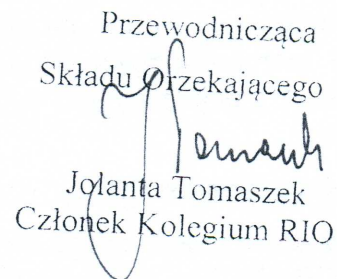 Przewodnicząca
Składu Orzekającego
Jolanta Tomaszek
Członek Kolegium RIO